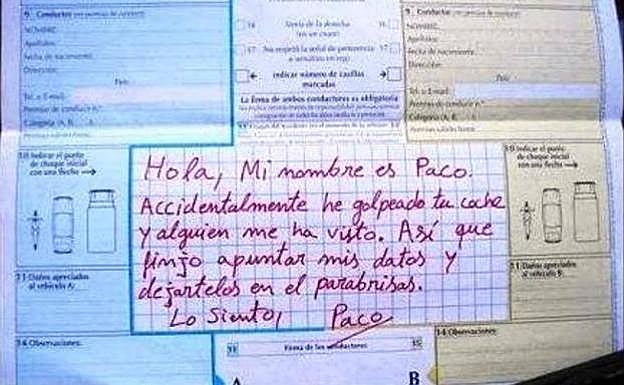 9. Conductor
NOMBRE:
Apellidos:
Fecha de nacimiento:
Dirección:
País:
Tel. o E-mail:
Permiso de conducir n.º
Categoría (A, B,
14
Venía de la derecha
(en un cruce)
16
17
No respetó la señal de preferencia
o semáforo en rojo
17
indicar número de casillas
marcadas
La firma de ambos conductores es obligatoria
9. Conductor
NOMBRE:
Apellidos:
Fecha de nacimiento:
Dirección:
País:
Tel. o E-mail:
Permiso de conducir n.º
Categoría (A, B,
10 Indicar el punto
de choque inicial
con una flecha
Hola, Mi nombre es Paco.
Accidentalmente he golpeado tu coche
y alguien me ha visto. Así que
finjo apuntar mis datos y
dejártelos en el parabrisas.
Lo siento, Paco
10 Indicar el punto
de choque inicial
con una flecha
11 Daños apreciados
al vehículo A:
11 Daños apreciados
al vehículo B:
14 Observaciones:
14 Observaciones:
15
Firma de los conductores
15
A
B